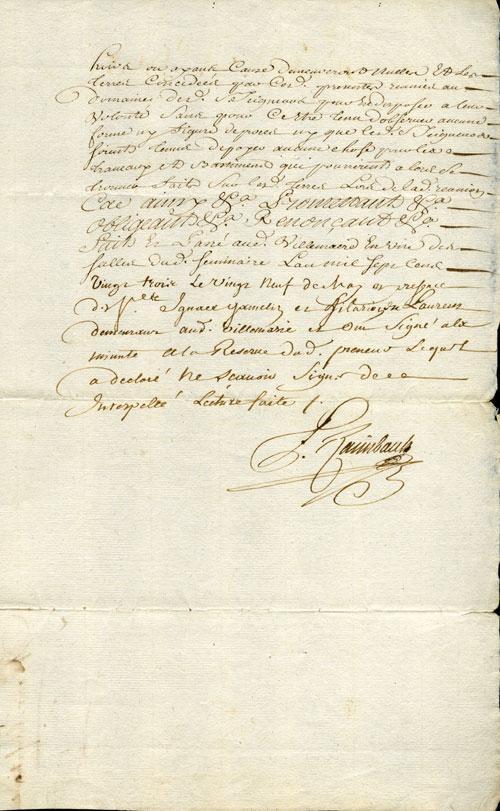 hoirs ou ayants Cause demeureront Nulles Et Les
terres Concedées par Ces d. presentes reunies au
domaine des d. Seigneurs pour En disposer a leur
Volonté Sans pour Ce Estre tenu d'observer aucune
forme ny figure de proces ny que les d. Seigneurs
soient tenus de payer aucune chose pour les
travaux et Bastiments qui pourront alors Se
trouver faits Sur les d. terres Lors de la d. reunion
Car ainsy &a Promettant &a
obligeant &a Renonçant &a
fait Et Passé aud. Villemarie En une des
Salles dud. Seminaire L'an mil Sept Cent
Vingt trois Le Vingt Neuf de May En presence
de Ignace Gamelin et Laurent
demeurant aud. Villemarie et ont Signé a la
minute a La Reserve dud. preneur Lequel
a declaré Ne Scavoir Signer de ce
Interpellé Lecture faite /.
J. Raimbault